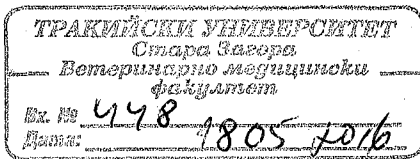 ТРАКИЙСКИ УНИВЕРСИТЕТ
Стара Загора
Ветеринарно медицински
факултет
Вх. № 448
Дата: 18 05 2016